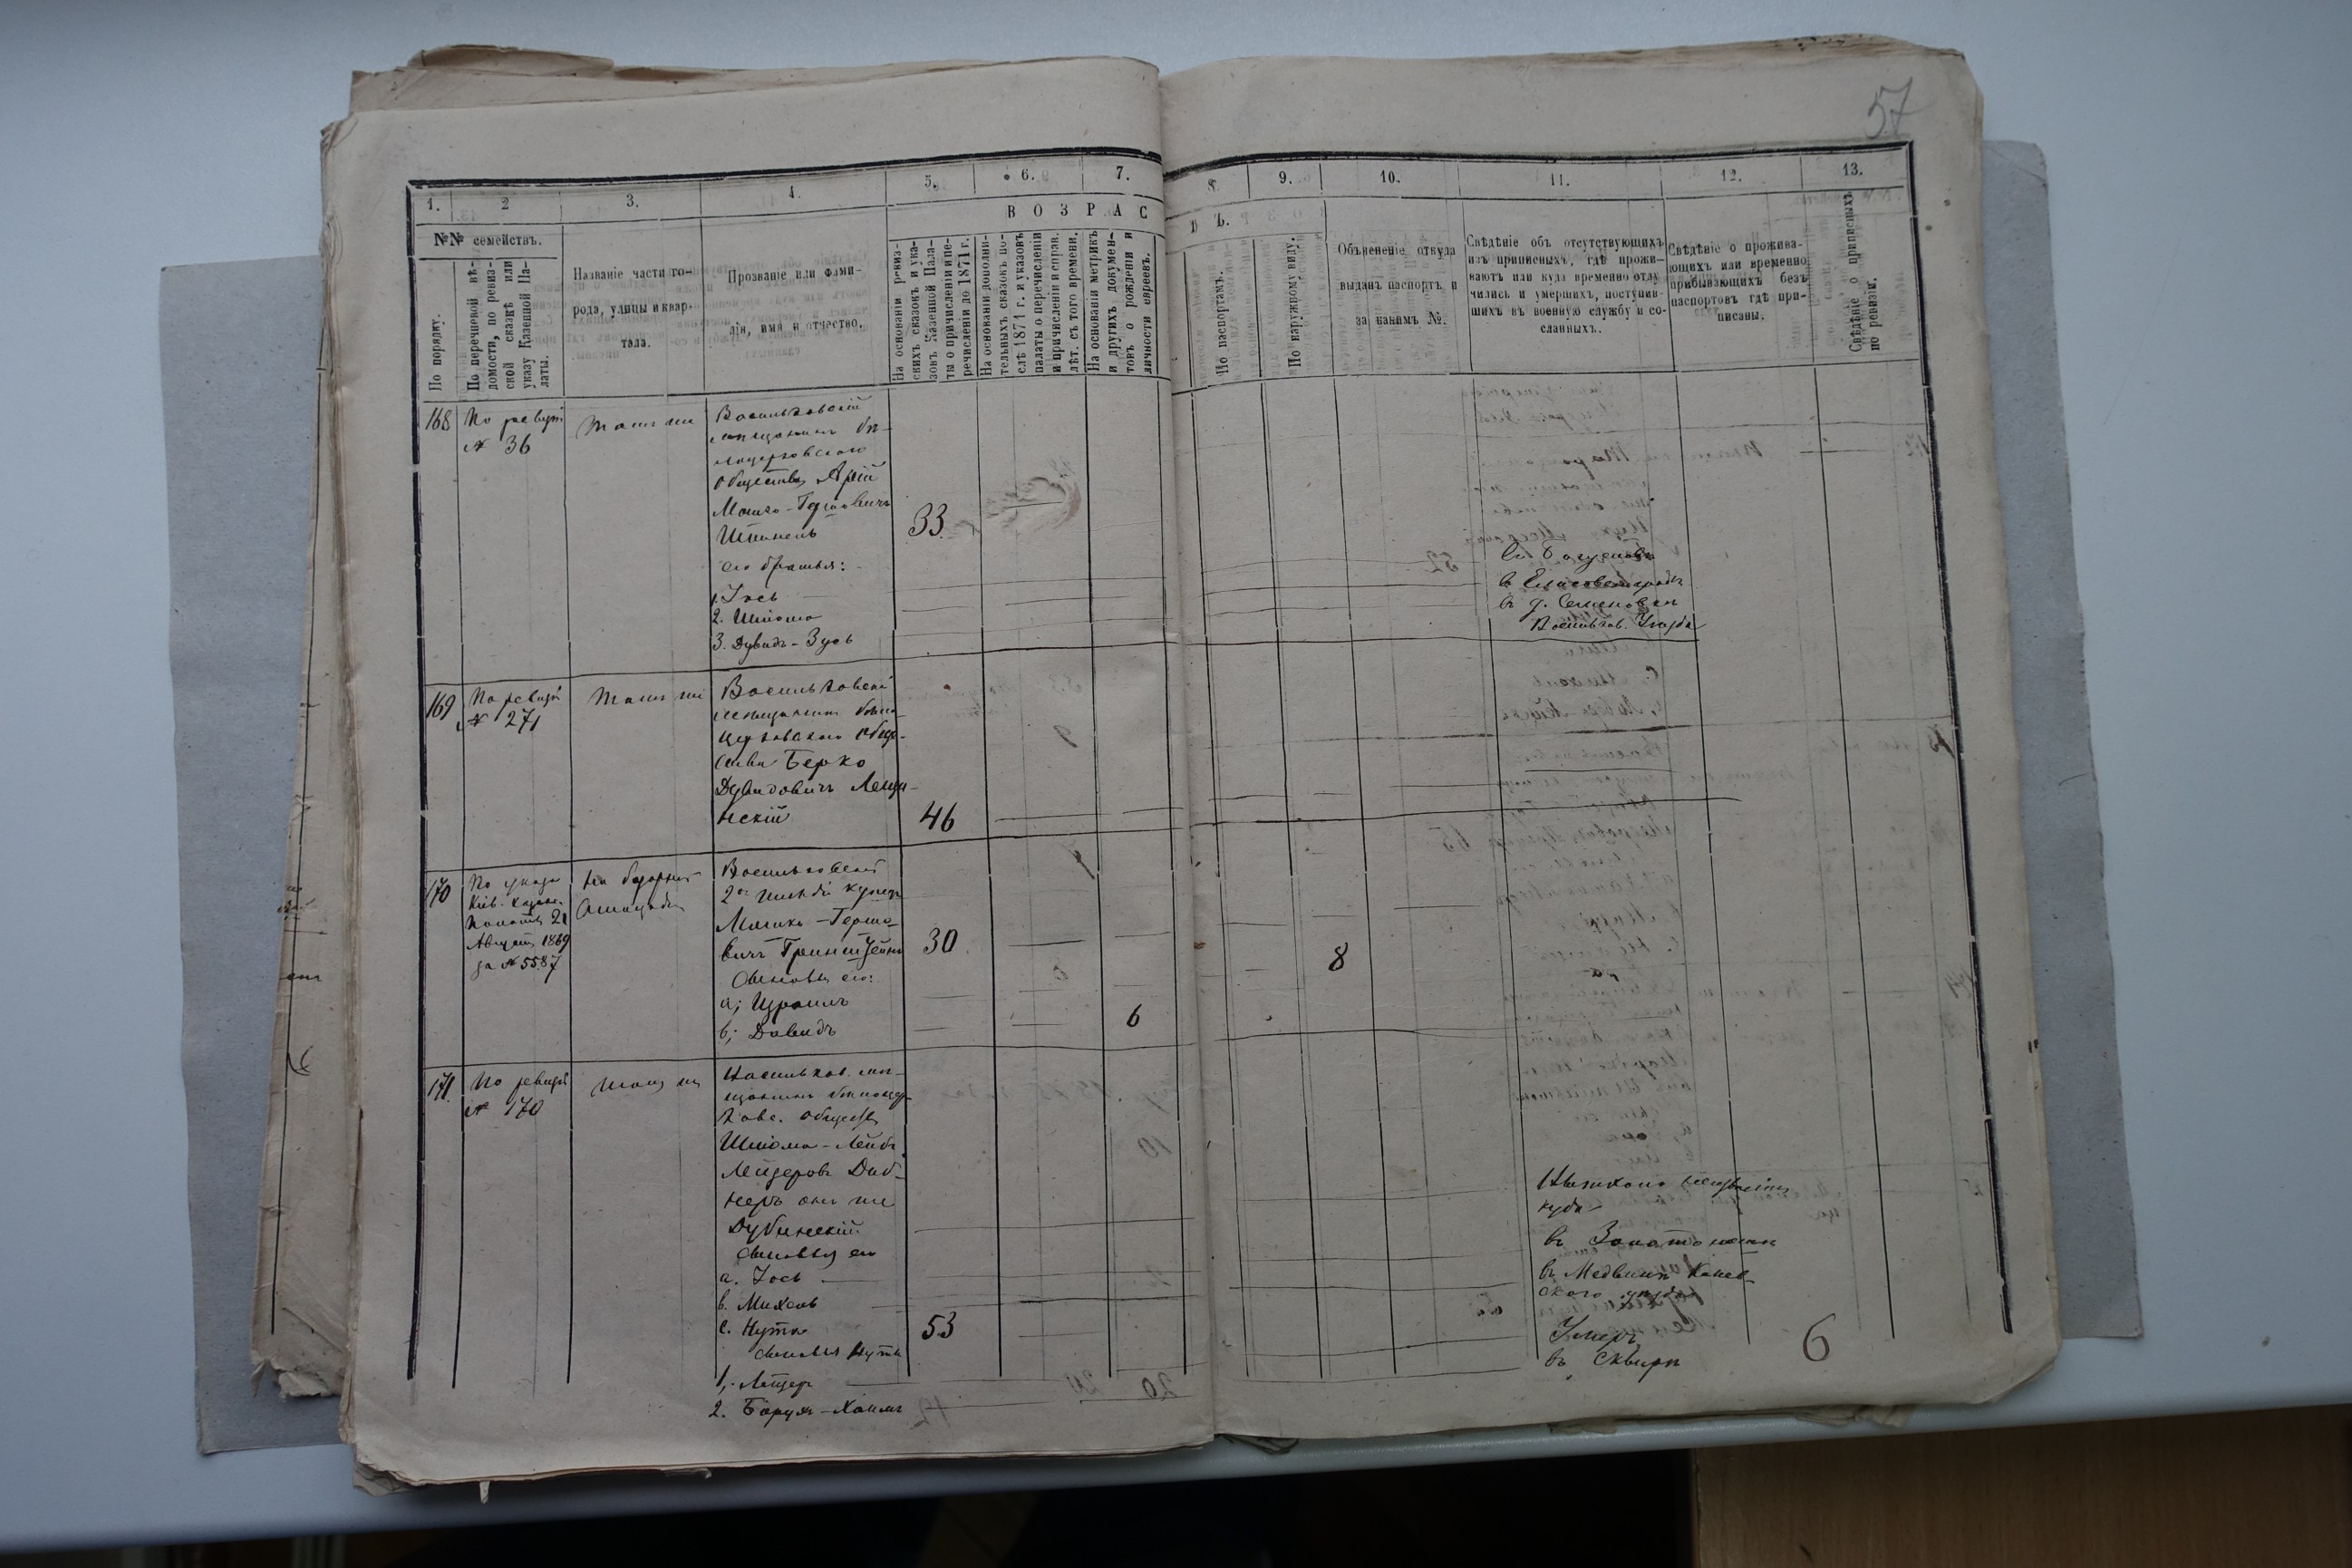 57
1. 2 3. 4. 5. 6. 7. 8. 9. 10. 11. 12. 13.
№№ семействъ.
По порядку.
По перечневой вѣ-
домости, по ревиз-
ской сказкѣ или
указу Казенной Па-
латы.
Названіе части го-
рода, улицы и квар-
тала.
Прозваніе или фами-
лія, имя и отчество.
ВОЗРАС
ТЪ.
На основаніи ревиз-
скихъ сказокъ и ука-
зовъ Казенной Пала-
ты о причисленіи и пе-
речисленіи до 1871 г.
На основаніи дополни-
тельныхъ сказокъ по-
слѣ 1871 г. и указовъ
палаты о перечисленіи
и причисленіи и справ.
лѣт. съ того времени.
На основаніи метрикъ
и другихъ докумен-
товъ о рожденіи и
личности евреевъ.
По паспортамъ.
По наружному виду.
Объясненіе откуда
выданъ паспортъ и
за какимъ №.
Свѣдѣніе объ отсутствующихъ
изъ приписныхъ, гдѣ прожи-
ваютъ или куда временно отлу
чились и умершихъ, поступив-
шихъ въ военную службу и со-
сланныхъ.
Свѣдѣніе о прожива-
ющихъ или временно
прибывающихъ безъ
паспортовъ гдѣ при-
писаны.
Свѣдѣніе о приписныхъ
по ревизіи.
168 По ревизіи
№ 36
Тамъ же
Васильковскій
мѣщанинъ бѣ-
лоцерковскаго
общества Арій
Мошко-Гершовичъ
Шпинель 33
его братья:
1. Іось
2. Шлома
3. Дувидъ-Зусь
въ Елисаветградѣ
въ д. Семеновкѣ
Васильков. Уѣзда
169 По ревизіи
№ 271
Тамъ же
Васильковскій
мѣщанинъ бѣло-
церковскаго обще-
ства Берко
Дувидовичъ Лещи-
нскій 46
170 По указу
Кіев. Казен.
Палаты 21
Августа 1869
за № 5587
На базарной
площади
Васильковскій
2ой гильдіи купецъ
Мошко-Гершо-
вичъ Гринштейнъ 30
сыновья его:
а; Израиль 8
б; Давидъ 6
171. По ревизіи
№ 170
Тамъ же
Васильков. мѣ-
щанинъ бѣлоцер-
ковс. общества
Шлома-Лейбъ
Лейзеровъ Дуб-
неръ онъ же
Дубинскій
сыновья его
а. Іось
в. Михель
с. Нута 53
сыновья Нуты
1; Лейзеръ
2. Борух-Хаимъ
Выехалъ неизвѣстно
куда
въ Золотоношѣ
въ Медвинѣ Канев-
ского уѣзда
Умеръ
въ Сквирѣ
6